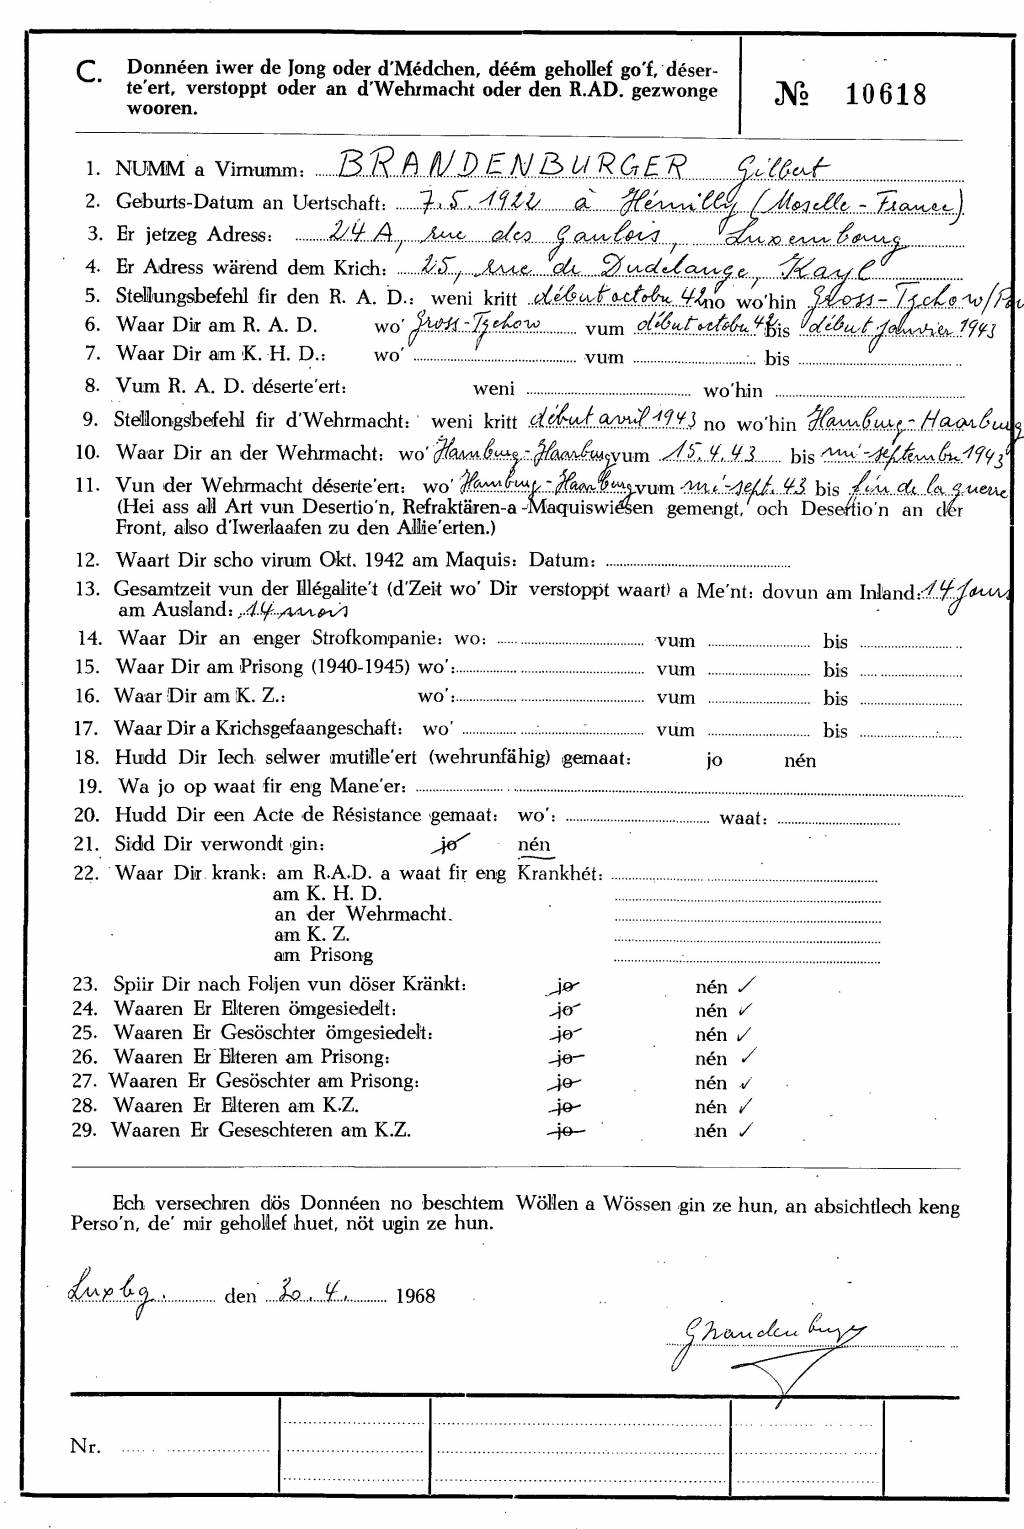 C. Donnéen iwer de Jong oder d'Médchen, déém gehollef go'f, déser-
te'ert, verstoppt oder an d'Wehrmacht oder den R.AD. gezwonge
wooren.
№ 10618
1. NUMM a Virnumm: BRANDENBURGER Gilbert
2. Geburts-Datum an Uertschaft: 7.5.1922 à Hémilly (Moselle - France).
3. Er jetzeg Adress: 24A, rue des Gaulois, Luxembourg
4. Er Adress wärend dem Krich: 25, rue de Dudelange, Kayl
5. Stellungsbefehl fir den R. A. D.: weni kritt début octobre 42 no wo'hin Gross-Tychow/
6. Waar Dir am R. A. D. wo' Gross-Tychow vum début octobre 42 bis début janvier 1943
7. Waar Dir am K. H. D.: wo' vum bis
8. Vum R. A. D. déserte'ert: weni wo'hin
9. Stellongsbefehl fir d'Wehrmacht: weni kritt début avril 1943 no wo'hin Hamburg-Haarburg
10. Waar Dir an der Wehrmacht: wo' Hamburg-Haarburg vum 15.4.43 bis mi-septembre 1943
11. Vun der Wehrmacht déserte'ert: wo' Hamburg-Haarburg vum mi-sept. 43 bis fin de la guerre
(Hei ass all Art vun Desertio'n, Refraktären-a-Maquiswiesen gemengt, och Desertio'n an der
Front, also d'Iwerlaafen zu den Allie'erten.)
12. Waart Dir scho virum Okt. 1942 am Maquis: Datum:
13. Gesamtzeit vun der Illégalite't (d'Zeit wo' Dir verstoppt waart) a Me'nt: dovun am Inland: 14 jours
am Ausland: 14 mois
14. Waar Dir an enger Strofkompanie: wo: vum bis
15. Waar Dir am Prisong (1940-1945) wo': vum bis
16. Waar Dir am K. Z.: wo': vum bis
17. Waar Dir a Krichsgefaangeschaft: wo' vum bis
18. Hudd Dir Iech selwer mutille'ert (wehrunfähig) gemaat: jo nén
19. Wa jo op waat fir eng Mane'er:
20. Hudd Dir een Acte de Résistance gemaat: wo': waat:
21. Sidd Dir verwondt gin: jo nén
22. Waar Dir krank: am R.A.D. a waat fir eng Krankhét:
am K. H. D.
an der Wehrmacht.
am K. Z.
am Prisong
23. Spiir Dir nach Foljen vun döser Kränkt: jo nén ✓
24. Waaren Er Elteren ömgesiedelt: jo nén ✓
25. Waaren Er Gesöschter ömgesiedelt: jo nén ✓
26. Waaren Er Elteren am Prisong: jo nén ✓
27. Waaren Er Gesöschter am Prisong: jo nén ✓
28. Waaren Er Elteren am K.Z. jo nén ✓
29. Waaren Er Geseschteren am K.Z. jo nén ✓
Ech versechren dös Donnéen no beschtem Wöllen a Wössen gin ze hun, an absichtlech keng
Perso'n, de' mir gehollef huet, nöt ugin ze hun.
Luxbg. den 30.4. 1968
GBrandenburger
Nr.